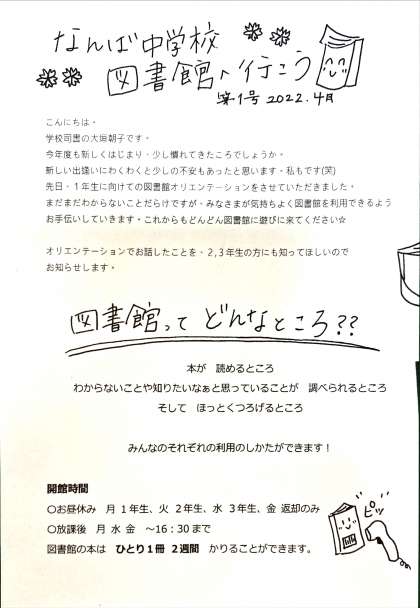 なんば中学校
図書館へ行こう
第1号 2022.4月
こんにちは。
学校司書の大垣朝子です。
今年度も新しくはじまり、少し慣れてきたころでしょうか。
新しい出逢いにわくわくと少しの不安もあったと思います。私もです(笑)
先日、1年生に向けての図書館オリエンテーションをさせていただきました。
まだまだわからないことだらけですが、みなさまが気持ちよく図書館を利用できるよう
お手伝いしていきます。これからもどんどん図書館に遊びに来てください☆
オリエンテーションでお話したことを、2,3年生の方にも知ってほしいので
お知らせします。
図書館って どんなところ??
本が 読めるところ
わからないことや知りたいなぁと思っていることが 調べられるところ
そして ほっとくつろげるところ
みんなのそれぞれの利用のしかたができます!
開館時間
○お昼休み 月 1年生、火 2年生、水 3年生、金 返却のみ
○放課後 月 水 金 ～16:30まで
図書館の本は ひとり1冊 2週間 かりることができます。
ピッ